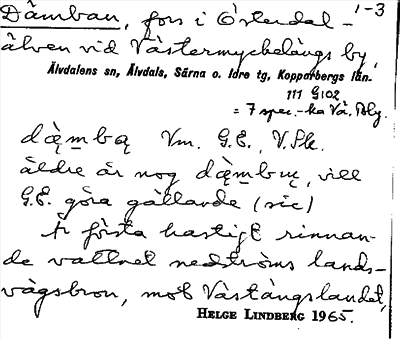 Dämban, fors i Österdal- 1-3
älven vid Västermyckelängs by,
Älvdalens sn, Älvdals, Särna o. Idre tg, Kopparbergs län.
111 G102
= 7 spec.-ka Vä. Bly.
dą̈mbą Vm. G.E., V.Sk.
äldre är nog dą̈mbuę, vill
G.E. göra gällande (sic)
Är första hastigt rinnan-
de vattnet nedströms lands-
vägsbron, mot Västängslandet,
HELGE LINDBERG 1965.